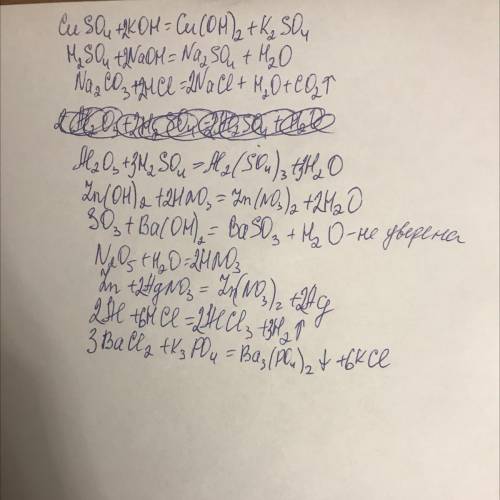 CuSO₄+2KOH=Cu(OH)₂+K₂SO₄
H₂SO₄+2NaOH=Na₂SO₄+H₂O
Na₂CO₃+2HCl=2NaCl+H₂O+CO₂↑
Al₂O₃+3H₂SO₄=Al₂(SO₄)₃+3H₂O
Zn(OH)₂+2HNO₃=Zn(NO₃)₂+2H₂O
SO₃+Ba(OH)₂=BaSO₃+H₂O-не уверена
N₂O₅+H₂O=2HNO₃
Zn+2AgNO₃=Zn(NO₃)₂+2Ag
2Al+6HCl=2AlCl₃+3H₂↑
3BaCl₂+K₃PO₄=Ba₃(PO₄)₂↓+6KCl